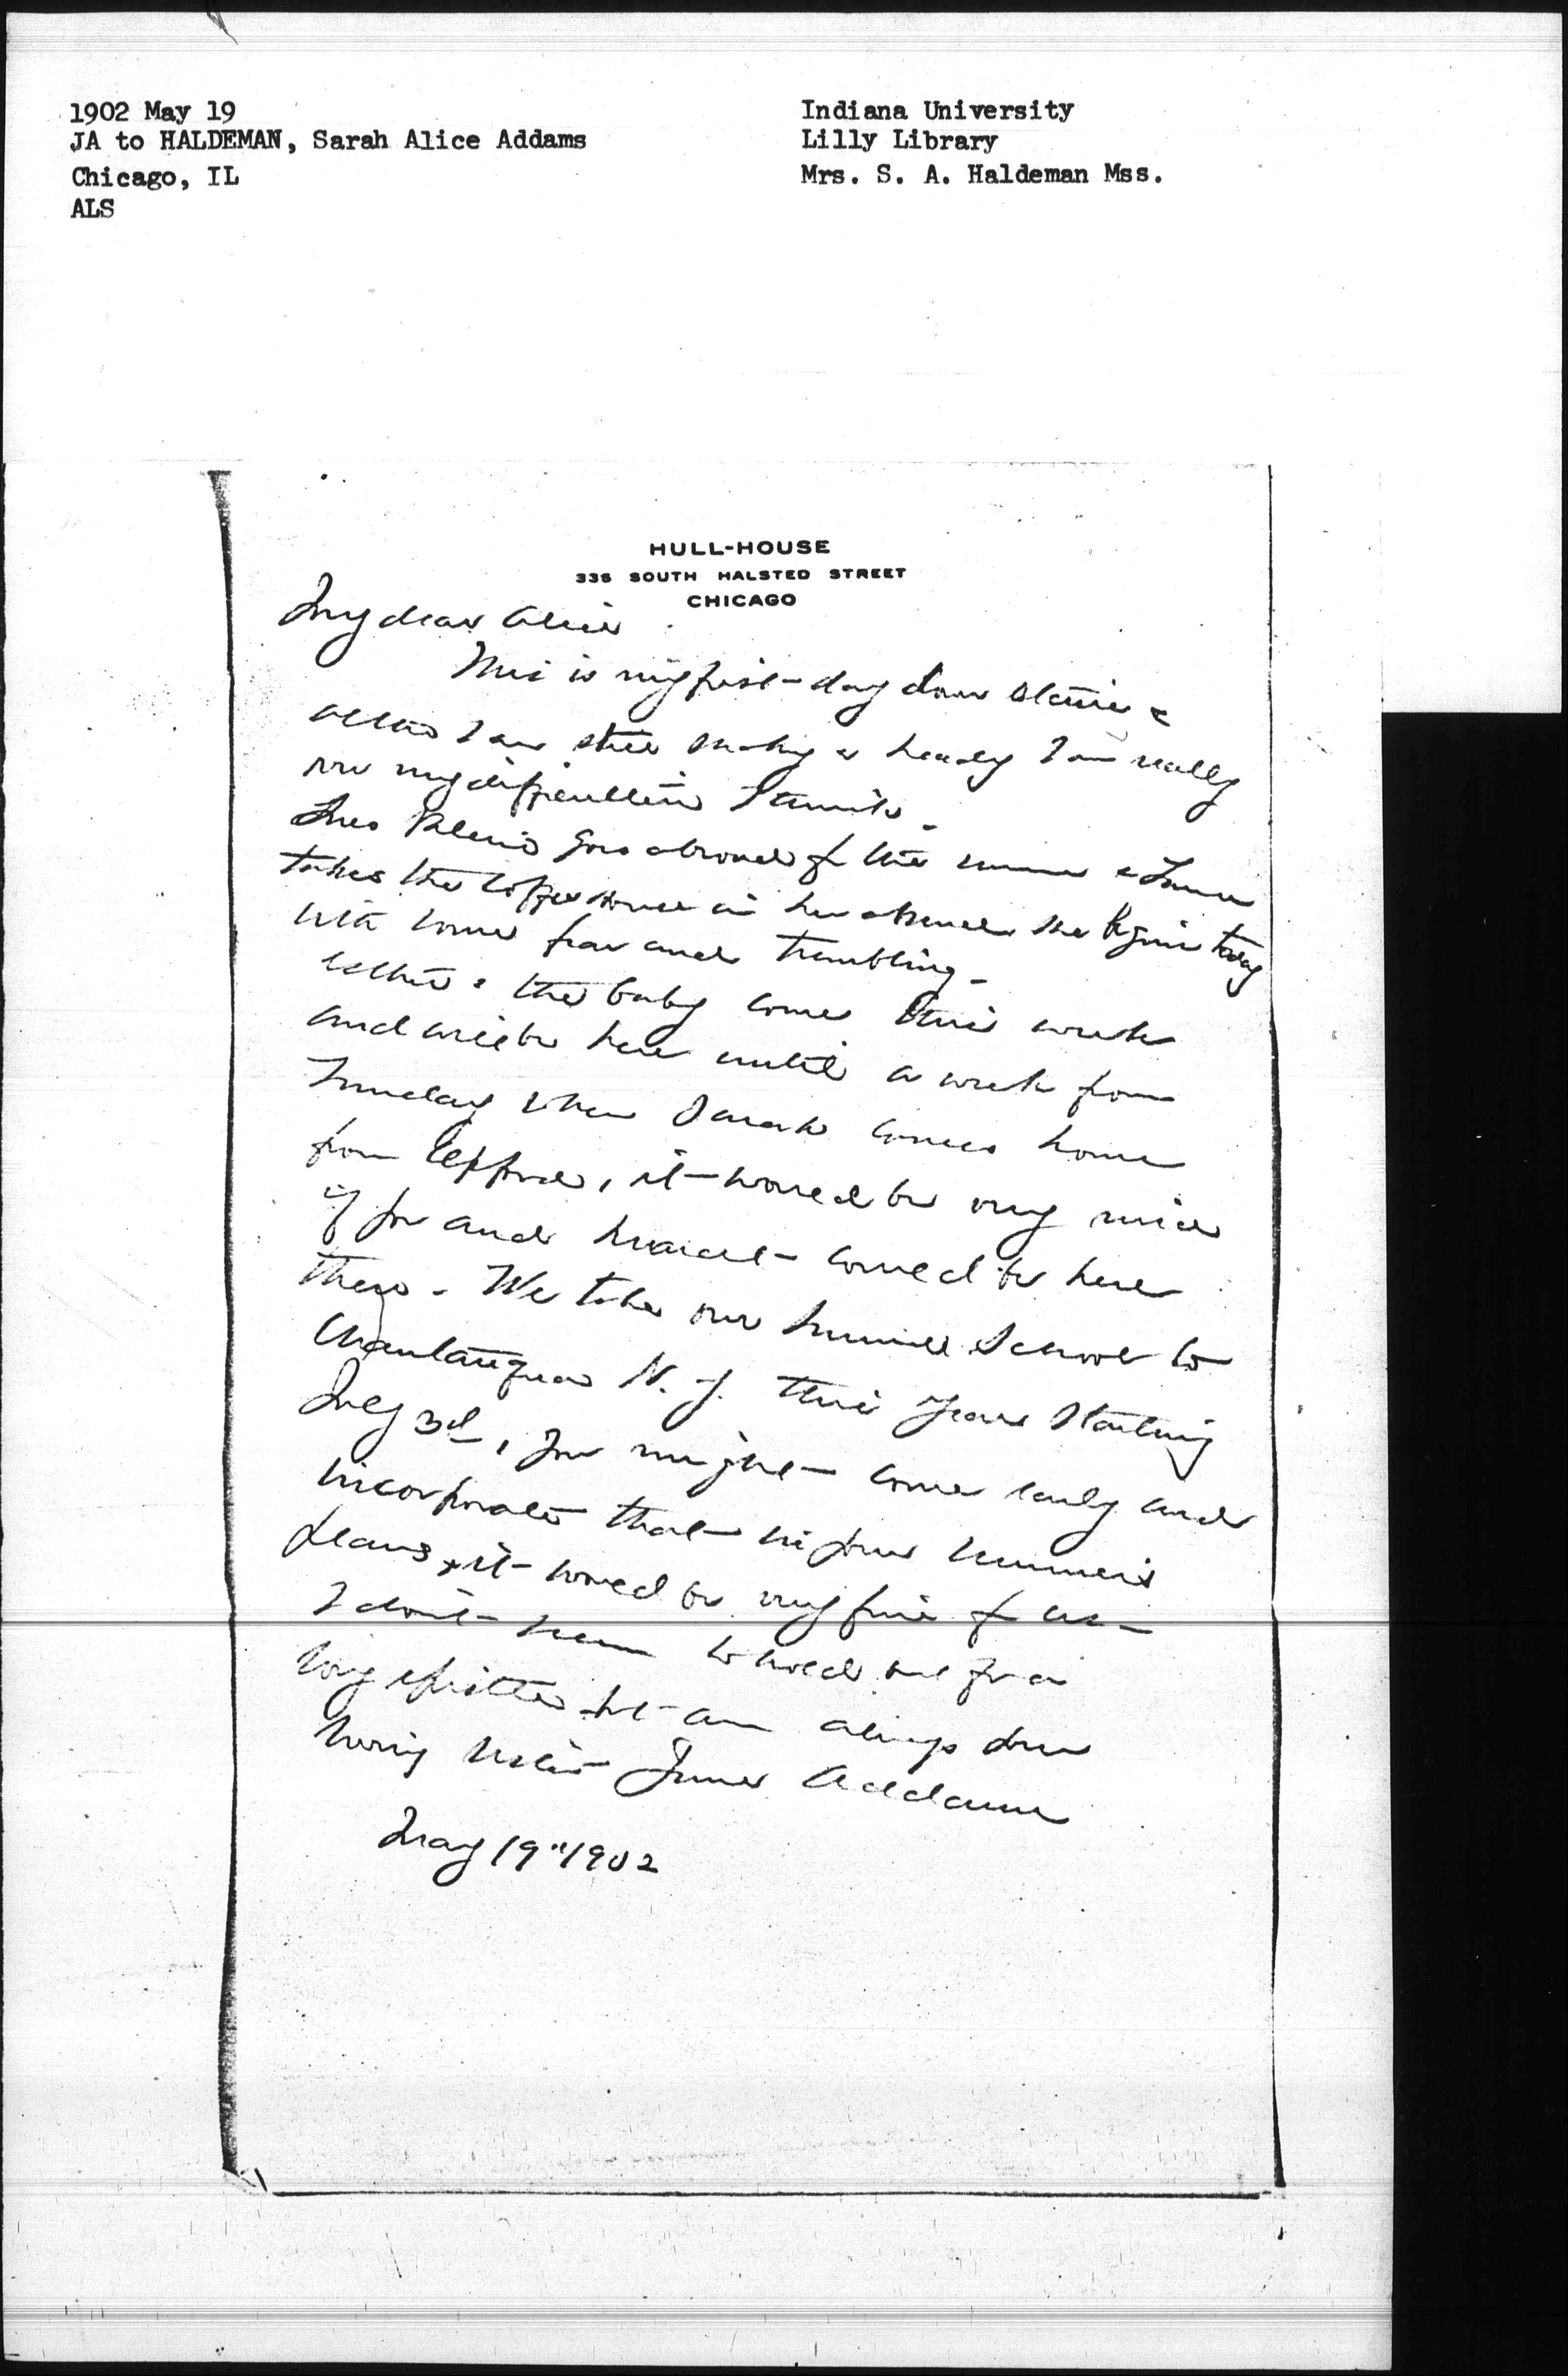 1902 May 19
JA to HALDEMAN, Sarah Alice Addams
Chicago, IL
ALS
Indiana University
Lilly Library
Mrs. S. A. Haldeman Mss.
HULL-HOUSE
335 SOUTH HALSTED STREET
CHICAGO
My dear Alice
This is my first day down stairs &
altho I am still shaky & heady I am really
over my difficulties I think.
goes abroad for the summer &
takes the Coffee House in her absence she begins today
with some fear and trembling.
Esther & the baby come this week
and will be here until a week from
Sunday when Sarah comes home
from, it would be very nice
if you and Marcet could be here
then. We take our Summer School to
Chautauqua N.Y. this year starting
July 3d, you might come early and
incorporate that in your summer's
plans, it would be very fine for us.
I don't seem to hold out for a
long epistle but am always your
loving sister Jane Addams
May 19" 1902